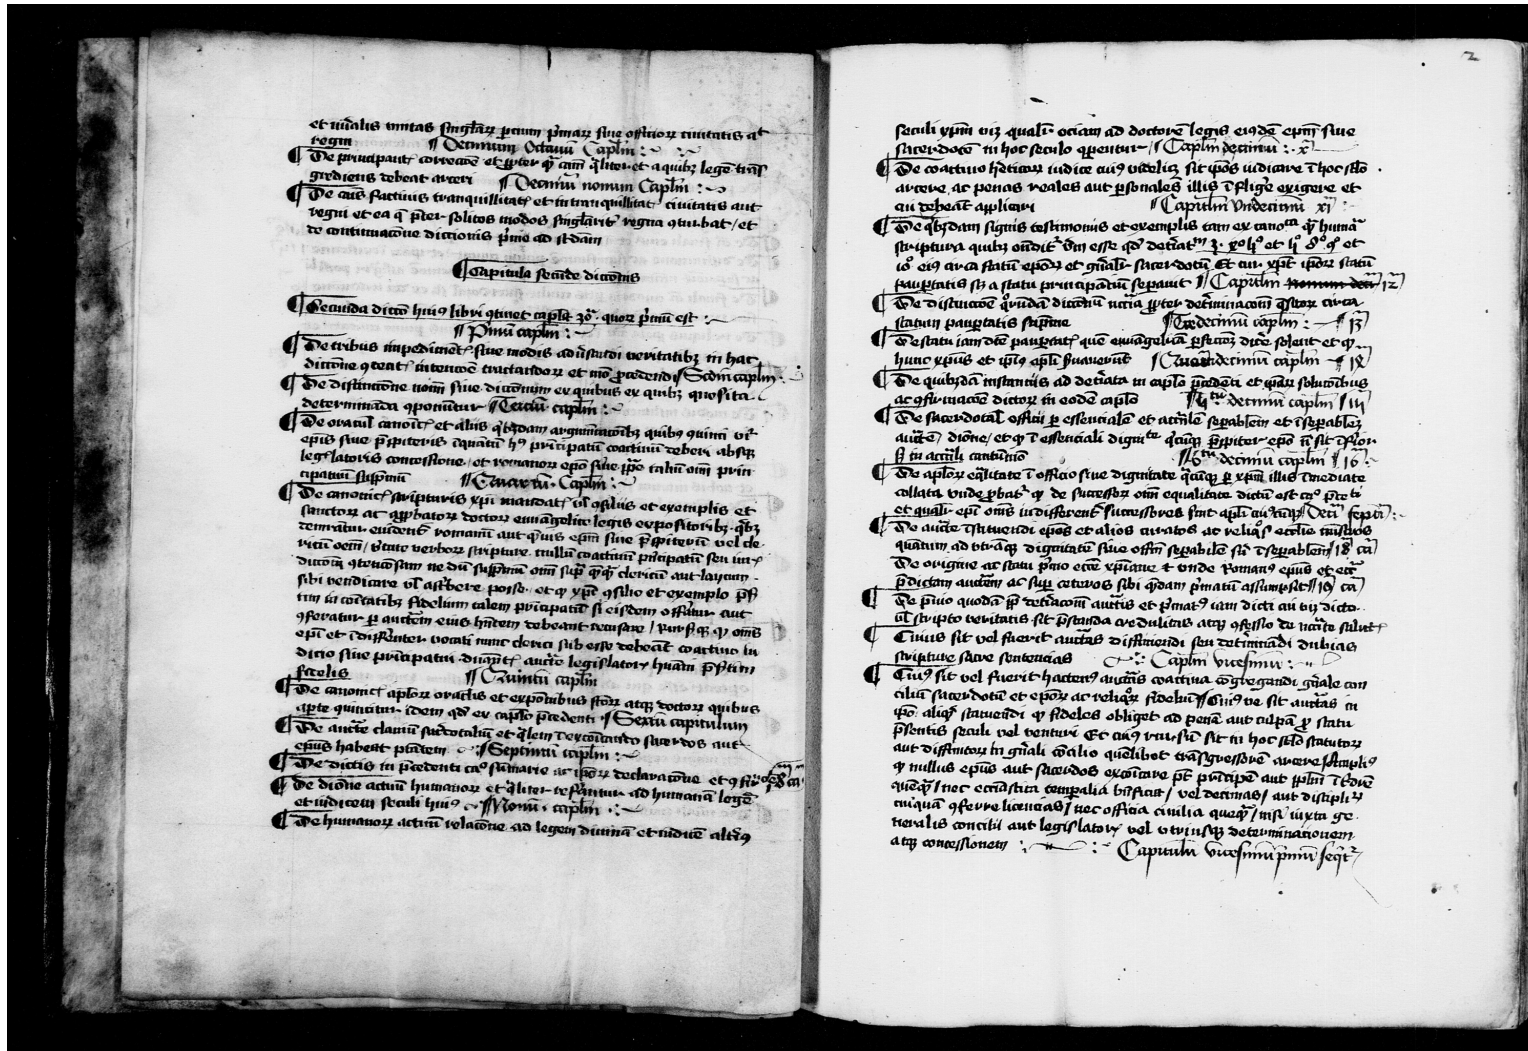 et mīalis unitas singlarꝝ ꝑcium p̄marꝝ siue officiorꝝ ciuitatis at
regni ¶ Decimum Octauū Caplm̄
¶ De principant correccōe et ꝓpter qͣ cām qͣliter et a quibꝫ legē trās
grediens debeat arceri ¶ Decimū nonum Caplm̄
¶ De cāis factiuis tranquillitat et intranquillitat ciuitatis aut
regni et ea q̄ p̄ter solitos modos singlarit regna ꝯturbat et
de continuacōne dictionis p̄me ad scdam
¶ Capitula secūde dictōnis
¶ Secunda dictō huiꝰ libri ꝯtinet capla 30ᵃ quorꝝ p̄mū est
¶ P̄mū caplm̄
¶ De tribus impedimēt siue modis aduersandi veritatibꝫ in hac
dictiōne ꝯtent intencōe tractandorꝝ et mō ꝓcedendi ¶ Scdm caplm̄
¶ De distinctōne noīm siue dictōnum ex quibus ex quibꝫ quesita
determināda ꝯponūtur ¶ Tercium caplm̄
¶ De oracul canoīc et aliis qͥbꝫdam argumētacōibꝫ quibꝰ quinci vr̄
ep̄is siue p̄sbiteris īquātū hꝰ principatū coactiuū deberi absqꝫ
legꝭlatoris concessione et romanorꝝ ep̄o siue pp̄e taliū om̄i prin
cipatum supp̄mū ¶ Quartum Caplm̄
¶ De canonic scripturis xp̄i mandat vl ꝯsiliis et exemplis et
sanctorꝝ ac approbatorꝝ doctorꝝ euuāgelice legis expositoribꝫ qͥbꝫ
demr̄atur euident romanū aut quēuis ep̄m siue p̄sbiterū vel cle
ricū oēm vtute verborꝝ scripture nullū coactiuū p̄ncipatū seu iurꝭ
dictiōm ꝯtenciosam ne dū supp̄mū om̄i supͣ quēqͣ clericū aut laycum
sibi vendicare vl asc̄bere posse et qꝫ xp̄i ꝯsilio et exemplo p̄s
tim in cōitatibꝫ fidelium talem principatū si eisdem offeratur aut
ꝯferatur ꝑ auctem eius hn̄tem debeant recusare Rursꝰ qꝫ om̄s
ep̄i et indifferēter vocati nunc clerici sub esse debeāt coactiuo iu
dicio siue principatui dn̄ant auct̄e legislatorꝭ huāni p̄stim
fidelis ¶ Quintū caplm̄
¶ De canonic aplorꝝ oraclis et expōnibus sctorꝝ atqꝫ doctorꝝ quibus
aꝑte quincitur idem qd ex caplo p̄cedenti ¶ Sextū capitulum
¶ De auctē clauiū sacerdotaliū et qͣlem ī excōicando sacerdos aut
ep̄us habeat ptātem ¶ Septimū caplm̄
¶ De dictis in p̄cedenti caᵒ sumarie ac ipsorꝝ declaracōne et ꝯfir 8ᵐ ca
¶ De diōne actuū humanorꝝ et qͣliter referūtur ad humanā legē
et iudicem seculi huiꝰ ¶ Nonū caplm̄
¶ De humanorꝝ actuū relacōne ad legem diuinā et iudicē alterius
2
seculi xp̄m viꝫ qualiter eciam ad doctorē legis eiusdē ep̄m siue
sacerdotē in hoc seculo referentur ¶ Caplm̄ decimū x
¶ De coactiuo heticorꝝ iudice cuiꝰ videlicꝫ sit ipōs iudicare ī hoc sclo
arcere ac penas reales aut ꝑsonales illis īfligere exigere et
cui debeāt applicari ¶ Capitlm̄ vndecimū xi
¶ De qͥbꝫdam signis testimoniis et exemplis tam ex canoīca qͣ humāa
scriptura quibꝫ oñditr vm esse qd
ioᵉ eiꝰ circa statū ep̄orꝝ et gn̄alr sacerdotū Et cur xp̄s ipsorꝝ statū
pauꝑtatis scꝫ a statu principantiū seꝑauit ¶ Capitlm̄ nonum decim̄ 12
¶ De distinctōe qͦrūdam dictionū nccīa ꝓpter determinacōem qͤsitorꝝ circa
statum pauꝑtatis supp̄me ¶ Tredecimū caplm̄ 13
¶ De statu iam dicte pauꝑtat quē euuāgelicā ꝑfectōꝫ dicē solent et qꝫ
hunc xp̄us et ipsiꝰ apli seruauerūt ¶ Quartdecimū caplm̄ 14
¶ De quibꝫdā instantiis ad det̄iata in caplo p̄cedēti et ipsarꝝ solucōnibus
ac ꝯfirmacōe dictorꝝ in eodē caplo ¶ decimū caplm̄
¶ De sacerdotal officii ꝑ essencialē et accn̄tale seꝑabilem et īseꝑabilem
auctē diōne et qꝫ ī essenciali dignitᵗᵉ quicūqꝫ p̄sbiter ep̄o nō sit īferior
sed tm̄ acctn̄li cantūmō ¶ decimū caplm̄ 16
¶ De aplorꝝ equalitate ī officio siue dignitate qͥcūqꝫ ꝑ xp̄m illis īmediate
collata vnde ꝓbat qꝫ de successorꝝ om̄i equalitate dictū est caᵒ p̄cēti
et qualr ep̄i om̄s indifferent successores sint apli cuiuscūqꝫ decīm septī
¶ De auctē īstituendi ep̄os et alios curatos ac reliqͦs ecclīe ministros
quātum ad vtrāqꝫ dignitatū siue offm̄ seꝑabilē scꝫ īseꝑabilem 18 ca
De origine ac statu p̄mo ecce xp̄iane et vnde Romanꝰ ep̄us et ecca
p̄dictam auctem ac supꝰ ceteros sibi qͦdam p̄matū assumpsit 19 ca
¶ De p̄uio quodā ꝓp̄ deteīacōm auctis et p̄matꝰ iam dicti cui viꝫ dicto
vl scripto veritatis sit p̄standa credulitas atqꝫ ꝯfessio de nccitē salut
¶ Cuius sit vel fuerit auctas diffiniendi seu deter̄mīandi dubias
scripture sacre sentencias Caplm̄ vicesimū
¶ Cuiꝰ sit vel fuerit hactenꝰ auctas coactiua cōgregandi gn̄ale con
cilium sacerdotū et ep̄orꝝ ac reliqͦrꝝ fideliū Cuiꝰ ve sit auctas in
ipō aliqͣ statuendi qꝫ fideles obliget ad penā aut culpā ꝓ statu
p̄sentis seculi vel venturi Et cuiꝰ rursū sit in hoc sclo statutorꝝ
aut diffinitorꝝ in gn̄ali cōcilio quēlibet trāsgressorē arcere Ampliꝰ
qꝫ nullus ep̄us aut sacerdos excōicare pt̄ principē aut pplm īterdic̄e
quēqͣ nec ecclīastica temporalia bn̄ficia vel decimas aut
cuiquā ꝯferre licencias nec officia ciuilia queqͣ nisi iuxta ge
neralis concilii aut legislatorꝭ vel vtriusqꝫ determinationem
atqꝫ concessionem Capitulū vicesimū p̄mū seqͥtr